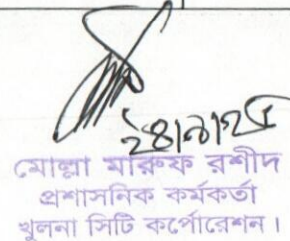 মোল্লা মারুফ রশীদ
প্রশাসনিক কর্মকর্তা
খুলনা সিটি কর্পোরেশন।